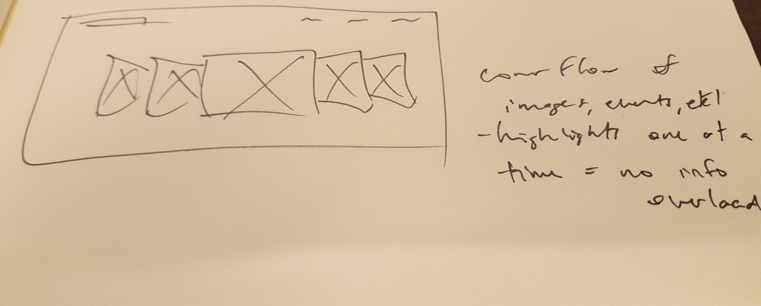 cover flow of
images, events, etc!
-highlights one at a
time = no info
overload